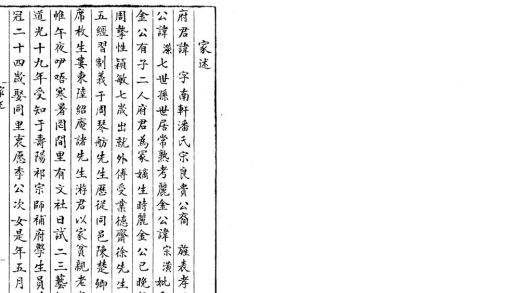 家述
府君諱　字南軒潘氏宗良貴公裔　旌表孝
公諱 七世孫世居常熟考麗金公諱宗潢妣
金公有子二人府君為冢嫡生時麗金公已晚
周摯性穎敏七歲出就外傅受業德齋徐先生
五經習制義于周琴舫先生歷從同邑陳楚卿
席枚生婁東陸紹庵諸先生游君以家貧親老
帷午夜咿唔寒暑罔間里有文社日試二三藝
道光十九年受知于壽陽祁宗師補府學生員
冠二十四歲娶同里 李公次女是年五月